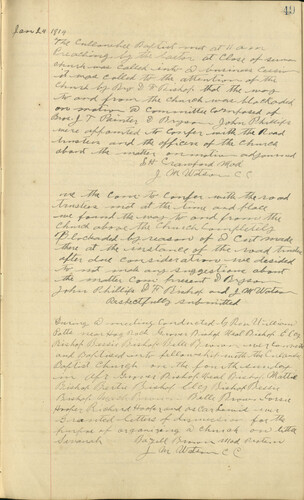 49
Jan 24 1914
The Cullowhee Baptist met at 11 a m
Preaching by the pastor at Close of sermon
church was called into a business Cession
it was called to the attention of the
Church by Bro D F Bishop that the way
to and from the Church were blockaded
on motion a Committee Composed of
Bros J T Painter D Bryson John Phillips
were appointed to Confer with the Road
trustees and the officers of the Church
about the matter on motion adjourned
Crawford Mod
J M Watson C C
we the Com to Confer with the road
trustees met at the time and place
we found the way to and from the
Church above the Church Completely
Blockaded by reason of a Cut made
there at the instance of the road trustees
after due consideration we decided
to not make any suggestions about
the matter Com present D Bryson
John Phillips D F Bishop and J M Watson
Respectfully submitted
During a meeting Conducted by Rev William
Potts near Bishop Bishop
Bishop Bessie Bishop Belle Brown were
and Baptised into fellowship with the Cullowhee
Baptist Church on the fourth sunday
in Bishop Bishop Mattie
Bishop Bertie Bishop Bishop Bessie
Bishop Brown Belle Brown
Hooper Richard Hooper were
Granted letters of dismission for the
purpose of organizing a church on little
Savanah Brown Mod
J M Watson C C